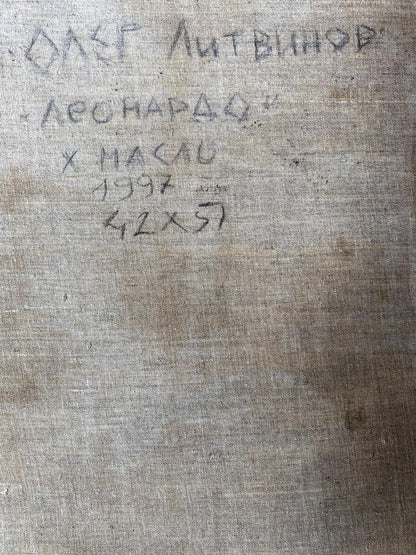 ОЛЕГ ЛИТВИНОВ
"ЛЕОНАРДО"
Х МАСЛО
1997
42х57